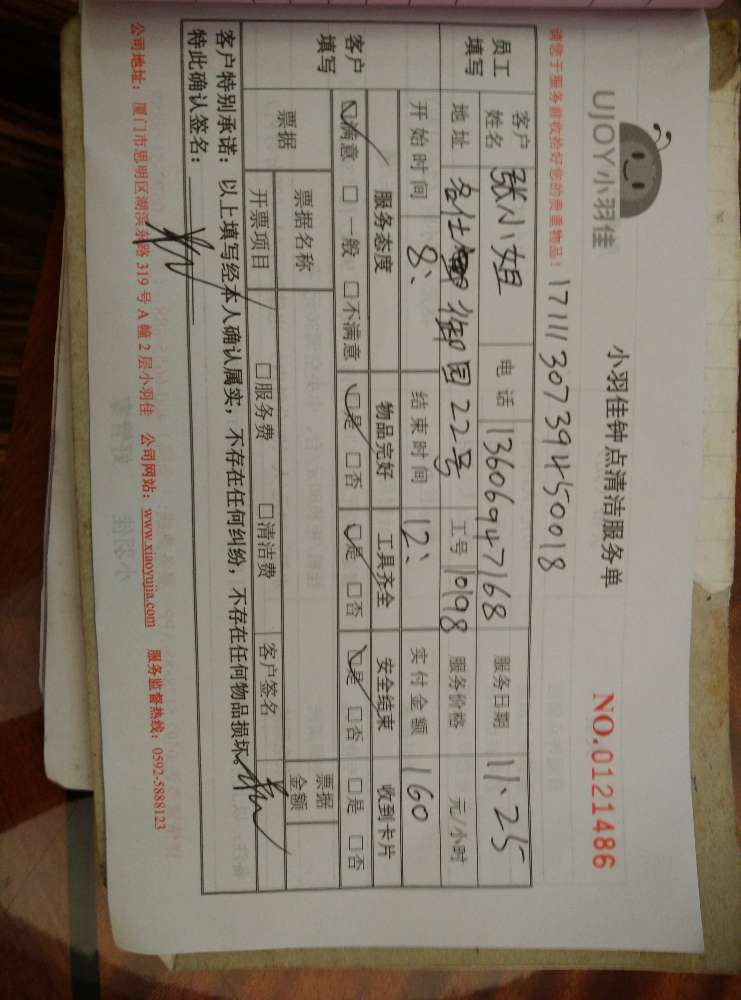 UJOY小羽佳
小羽佳钟点清洁服务单
NO.0121486
请您于服务前收拾好您的贵重物品!
1711130739450018
员工填写
客户姓名 张小姐 电话 13606947168 服务日期 11、25
地址 名仕御园22号 工号 10198 服务价格 元/小时
开始时间 8: 结束时间 12: 实付金额 160
客户填写
服务态度 物品完好 工具齐全 安全结束 收到卡片
☑满意 □一般 □不满意 ☑是 □否 ☑是 □否 ☑是 □否 □是 □否
票据 票据名称 票据金额
开票项目 □服务费 □清洁费 客户签名
客户特别承诺:以上填写经本人确认属实,不存在任何纠纷,不存在任何物品损坏。
特此确认签名:
公司地址:厦门市思明区湖滨东路319号A幢2层小羽佳 公司网站:www.xiaoyujia.com 服务监督热线:0592-5888123